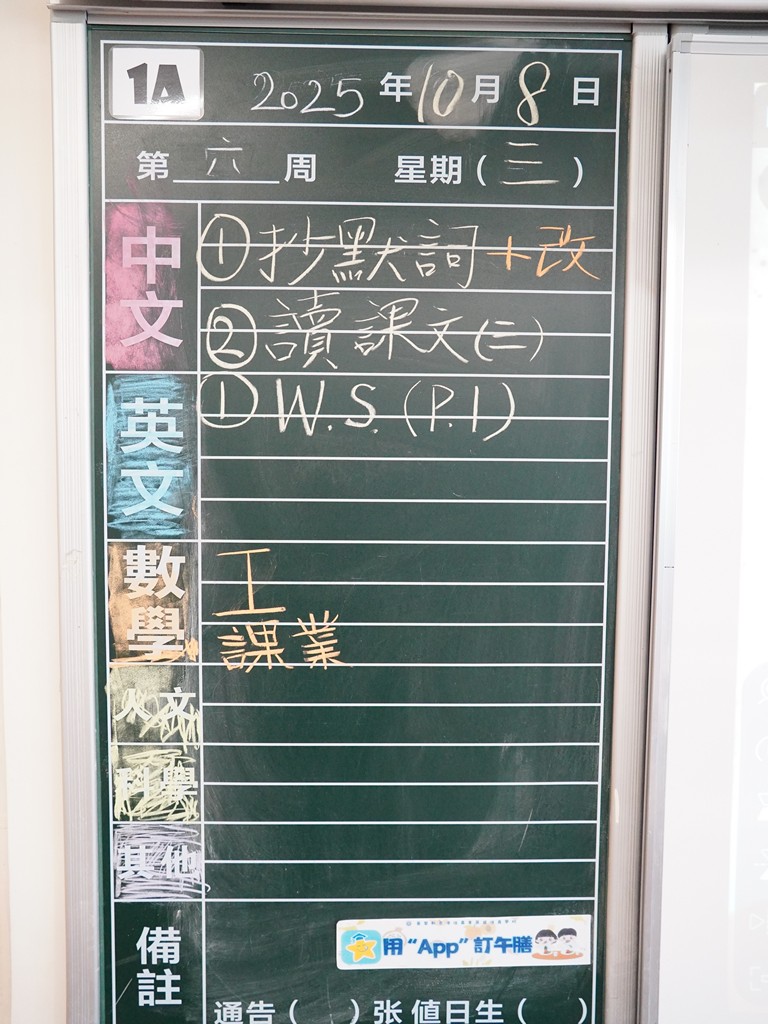 1A 2025 年 10 月 8 日
第 六 周 星期 ( 三 )
中文 ① 抄默詞 + 改
② 讀課文 (二)
英文 ① W.S. (P.1)
數學 工
課業
人文
科學
其他
備註
用 “App” 訂午膳
通告 ( ) 张 值日生 ( )